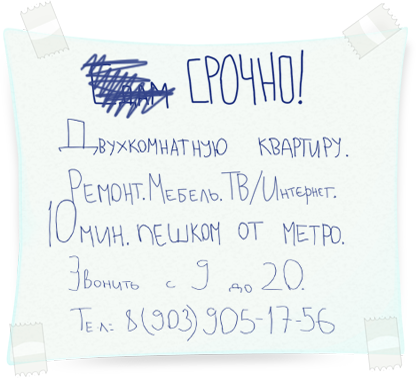 СРОЧНО!
Двухкомнатную квартиру.
Ремонт. Мебель. ТВ/Интернет.
10 мин. пешком от метро.
Звонить с 9 до 20.
Тел: 8(903)905-17-56